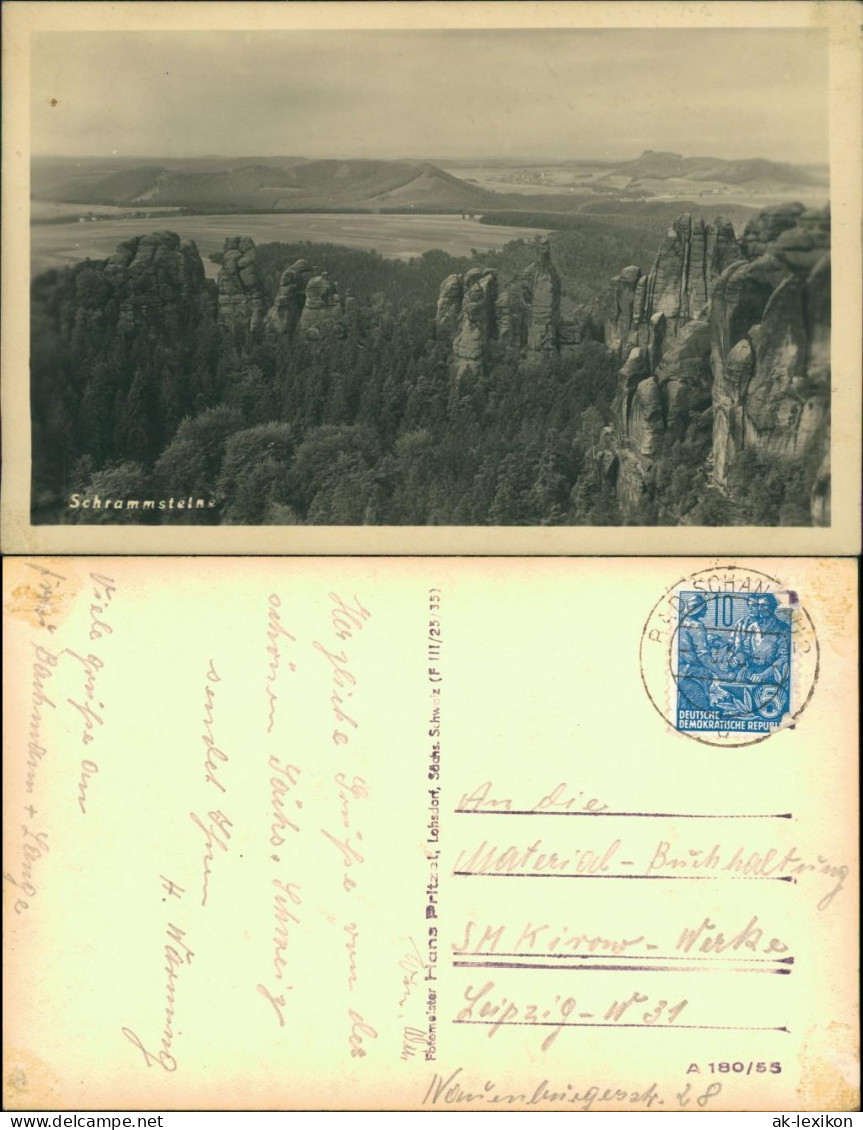 Schrammsteine
Herzliche Grüße von der
schönen Sächs. Schweiz
sendet Ihnen
H. Warming
Viele Grüße an
Frau Bachmann + Lange
Fotomeister Hans Pritzel, Lohsdorf, Sächs. Schweiz (F III/25/35)
BAD SCHANDAU 2
10
5
DEUTSCHE
DEMOKRATISCHE REPUBLIK
An die
Material-Buchhaltung
SM Kirow-Werke
Leipzig-W 31
A 180/55
Nauenburgerstr. 28
ak-ansichtskarten.de
ak-lexikon